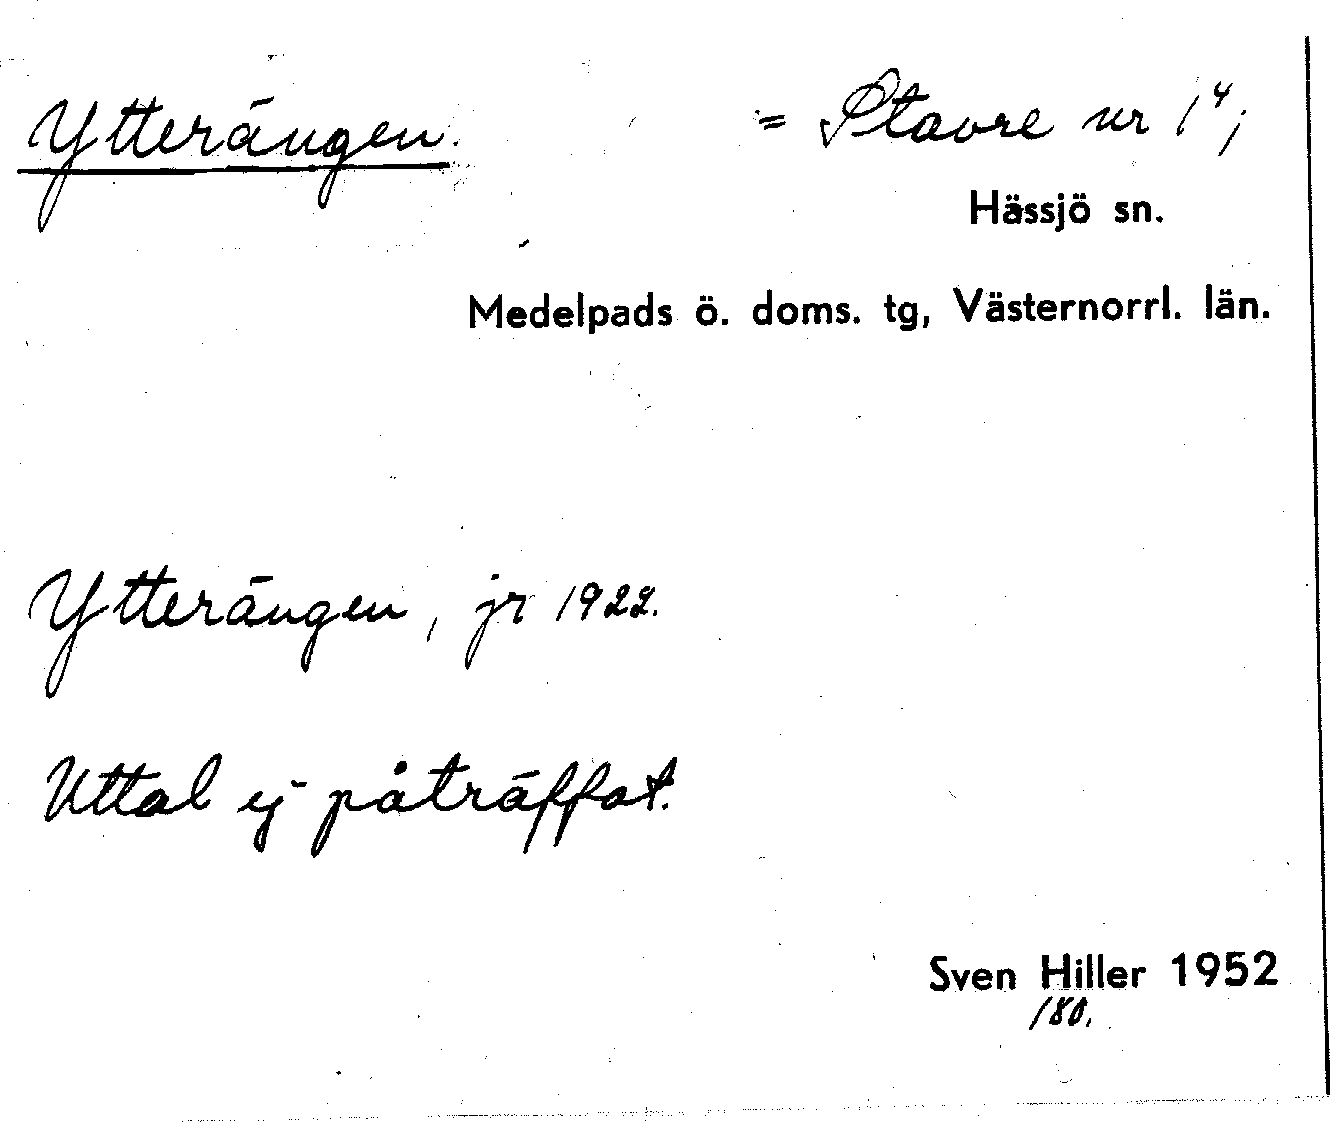 Ytterängen. = Stavre nr 1⁴;
Hässjö sn.
Medelpads ö. doms. tg, Västernorrl. län.
Ytterängen, jr 1922.
Uttal ej påträffat.
Sven Hiller 1952
180.